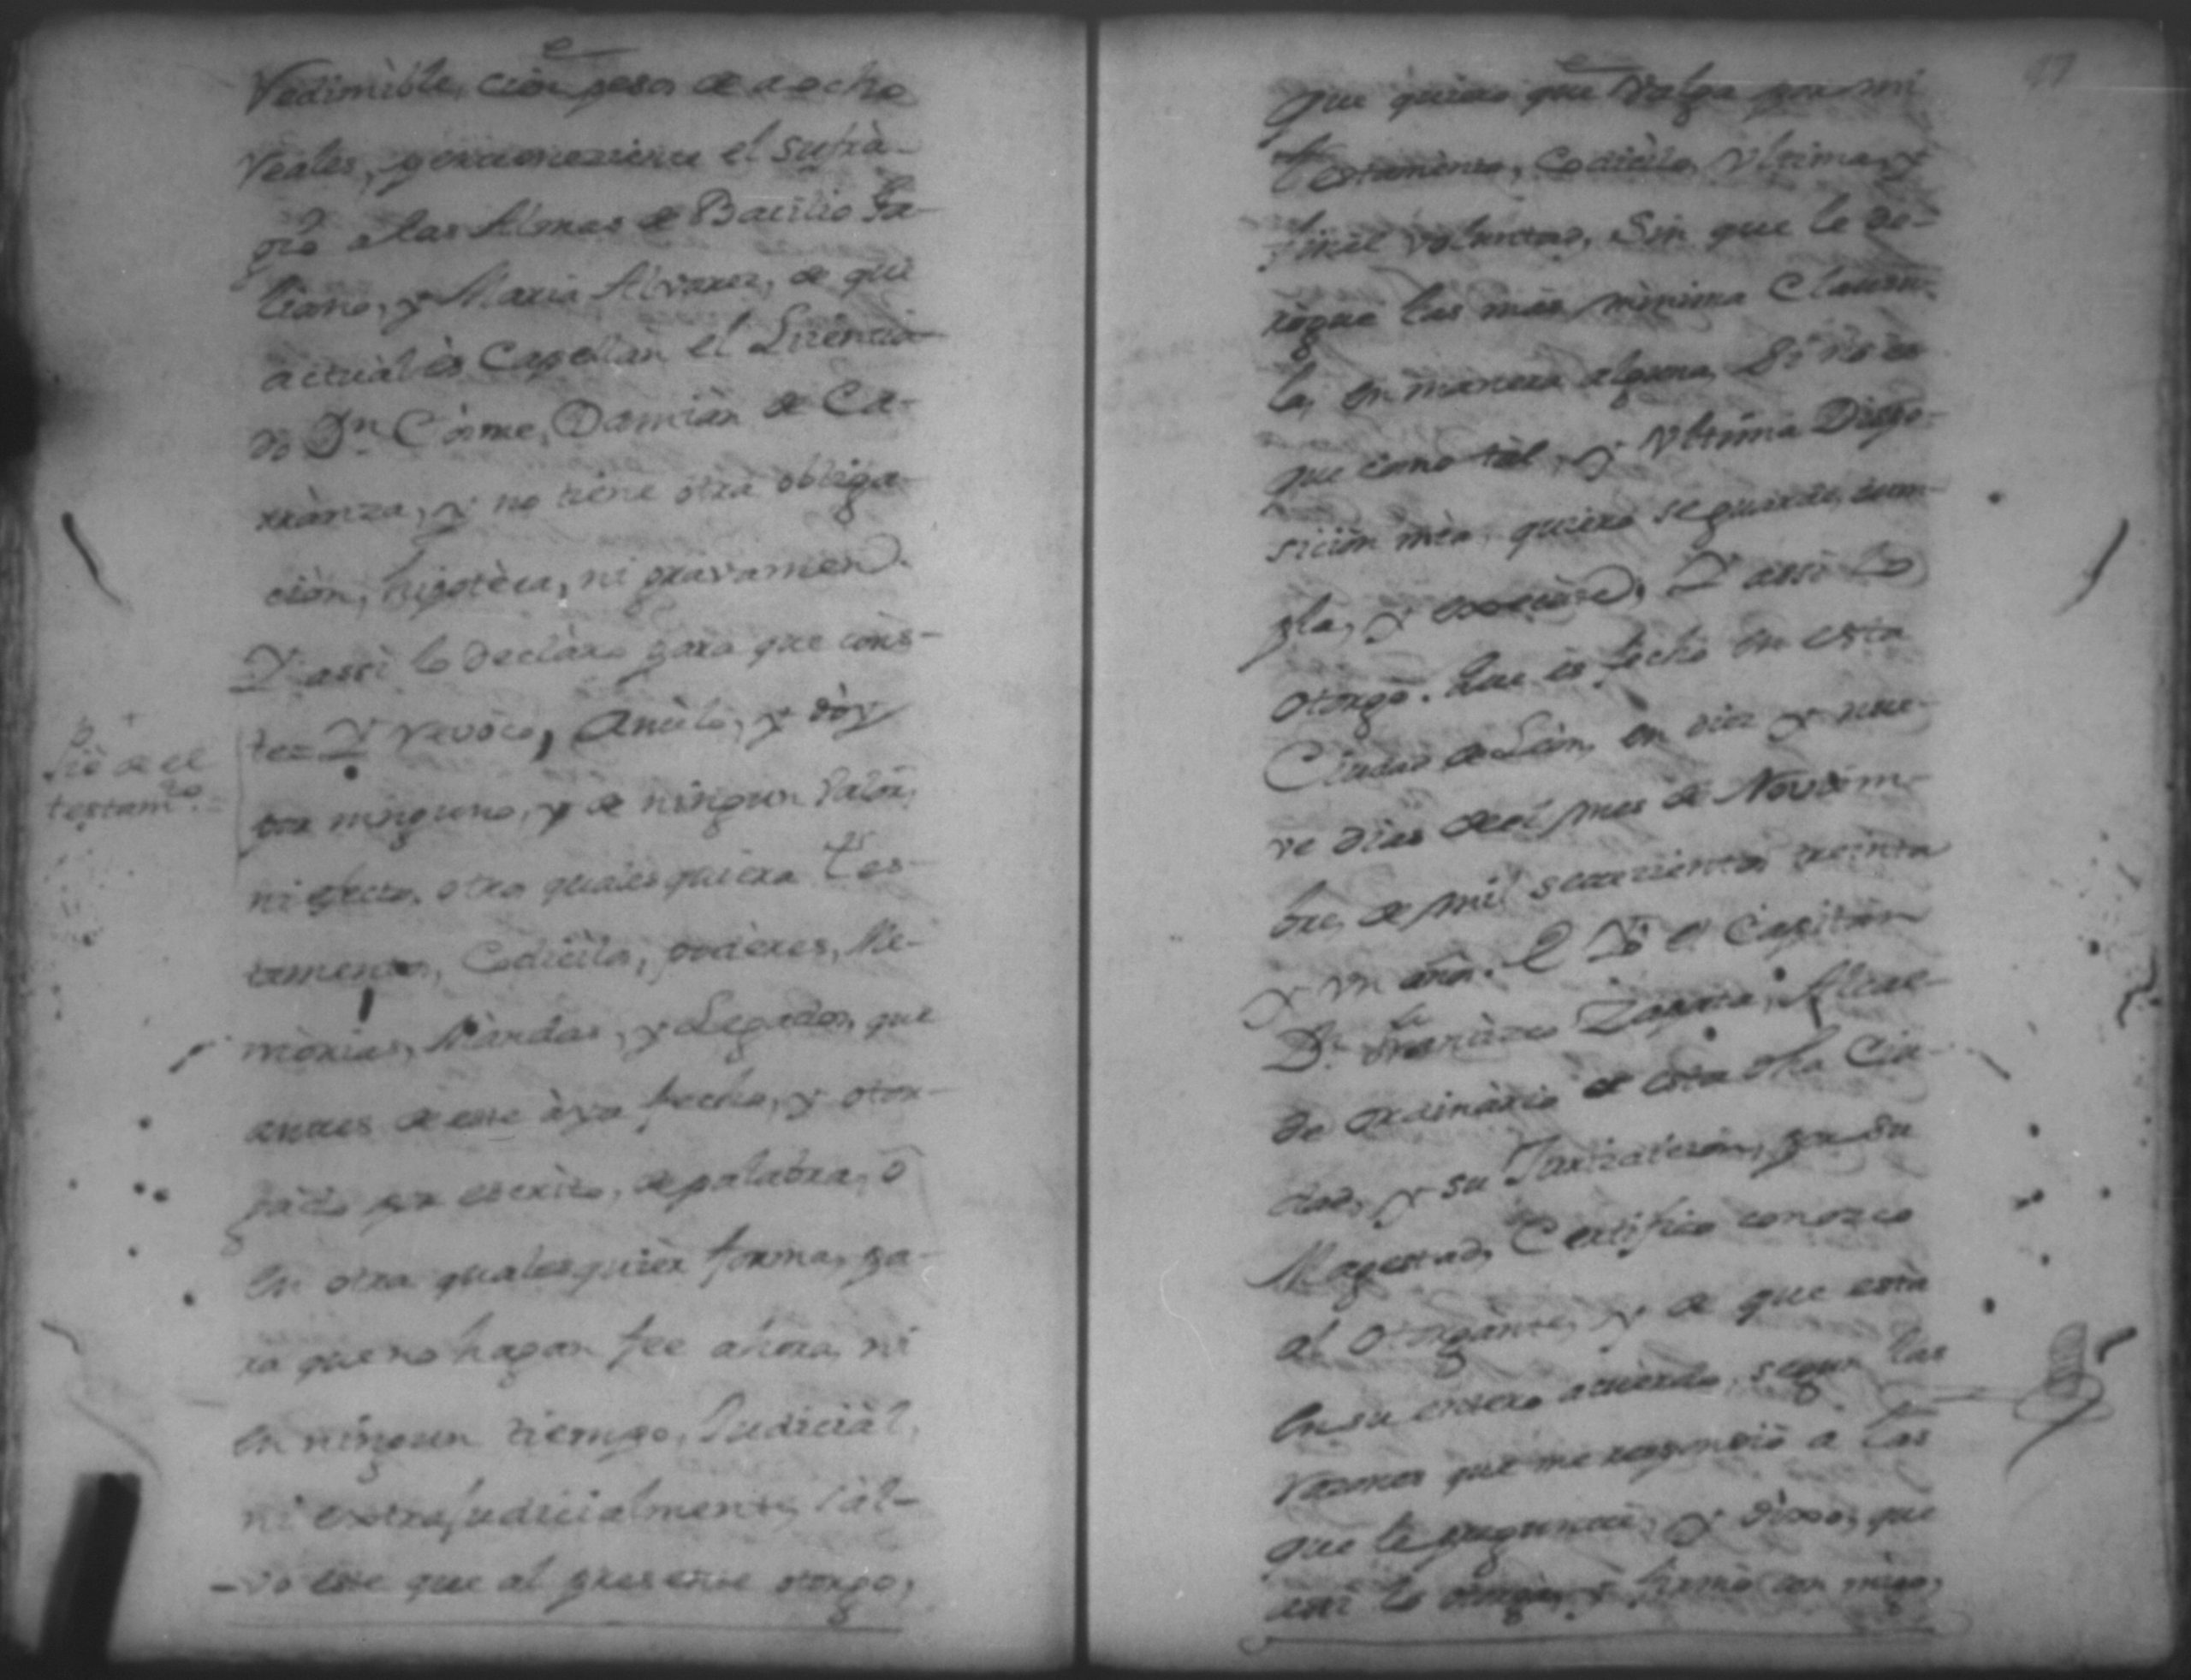 Vedimible, cien pesos de a ocho
Veales, y perteneziere el sufrà-
gio a las Almas de Bacilio Ga-
liano, y Maria Alvarez, de què
actuàl ès Capellàn el Lizencia-
do Dn Còsme, Damiàn de Ca-
rrànza, y no tiene òtra obliga-
ciòn, hipotèca, ni gravamen.
Y assi lo declàro para que cons-
te= Y revòco, Anùlo, y dòy
por ninguno, y de ningun Valòr,
ni efecto, otro qualesquiera tes-
tamento, Codicilo, podères, Me-
mòrias, Mandas, y Legados, que
antes de este àya fecho, y otor-
gàdo por escrito, de palabra, ò
en otra qualesquier forma, pa-
ra que no hagan fee ahora, ni
en ningun tiempo, Judiciàl,
ni extrajudicialmente, sàl-
-vo este que al presente otorgo,
Piè de el
testamto.
47
que quiero que valga por mi
testamento, Codicilo, Vltima, y
final voluntad, Sin que le de-
rògue las mas mìnima Clausu-
la, en manera alguna, Si no es
que como tàl, y Vltima Dispo-
siciòn mìa, quiero se guarde, cum-
pla, y execùte. Y assi lo
otorgo. Que es fecho en esta
Ciudad de Leòn, en diez y nue-
ve dias de el mes de Noviem-
bre, de mil setezientos treinta
y vn años. E Yo el Capitàn
Dn Zapata, Alcal-
de ordinàrio de esta dha Ciu-
dad, y su Jurisdiciòn, por Su
Magestad, Certifico conozco
al Otorgànte, y de que està
en su entero acuerdo, segun las
razones que me respondiò a las
que le preguntè, y dixo, que
assi lo otorga, y firmò con migo,